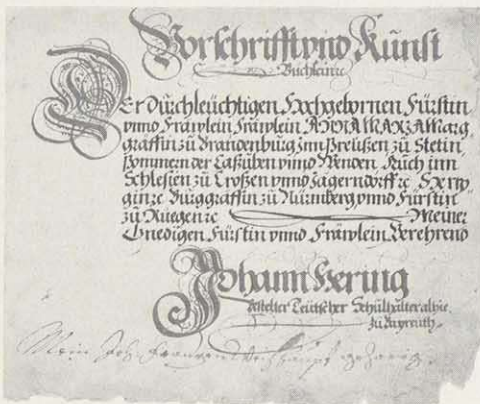 Vorschrifft vnd Kunst
Buchlein ꝛc
Der Durchleuchtigen Hochgebornen Fürstin
vnnd Fräwlein Fräwlein ANNA MARIA Marg
graffin zu Brandenburg Inn Preußen zu Stetin
Pommern der Caßüben vnnd Wenden Auch inn
Schlesien zu Croßen vnnd Jägerndorff ꝛc Hertzo
gin ꝛc Burggraffin zu Nürnberg vnnd Fürstin
zu Ruegen ꝛc Meiner
Gnedigen Fürstin vnnd Fräwlein Verehrend
Johann Hering
Teutscher Schulhalter alhie
zu Bayreuth
Mein Joh.